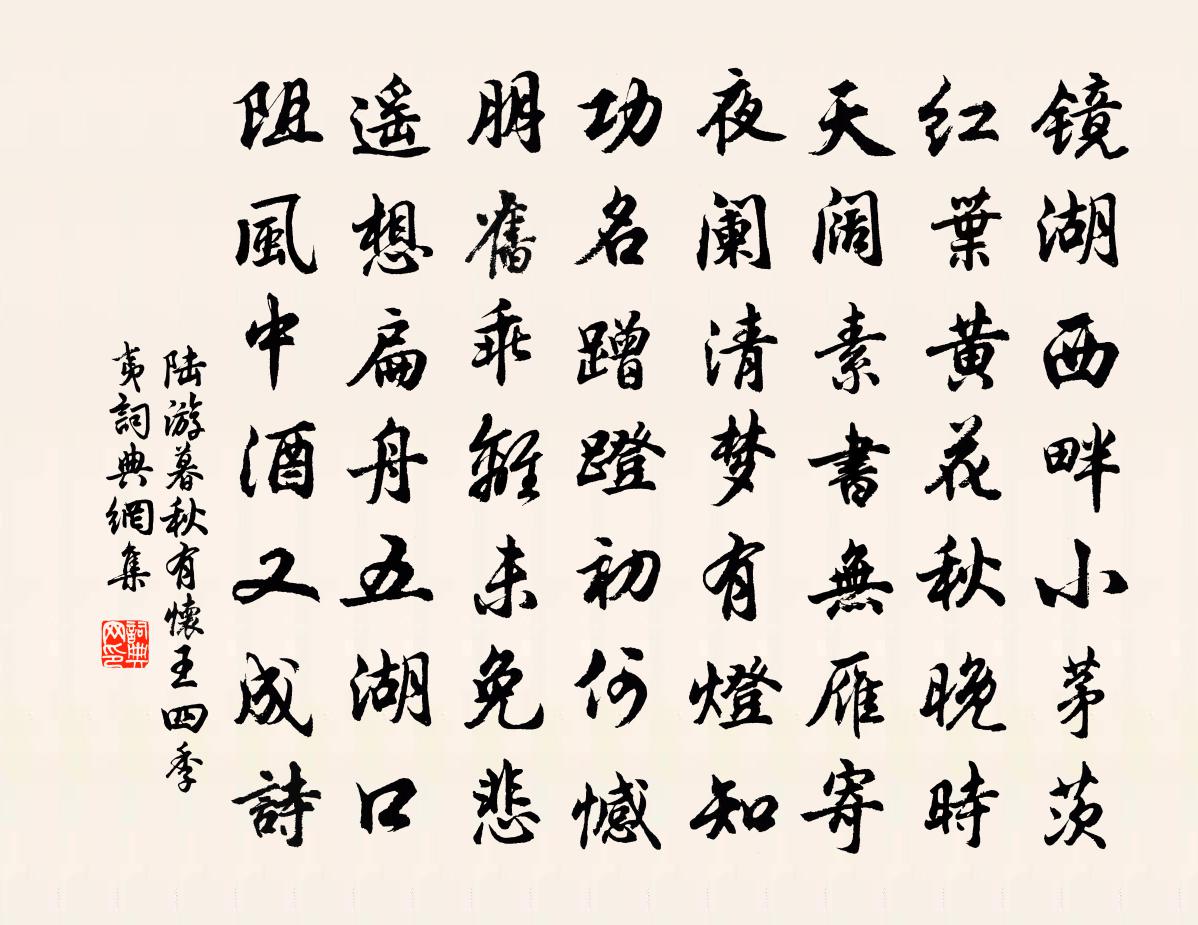 镜湖西畔小茅茨
红葉黄花秋晚時
天阔素書無雁寄
夜阑清梦有燈知
功名蹭蹬初何憾
朋舊乖離未免悲
遥想扁舟五湖口
阻風中酒又成詩
陆游暮秋有懷王四季
夷詞典網集
詞典网印